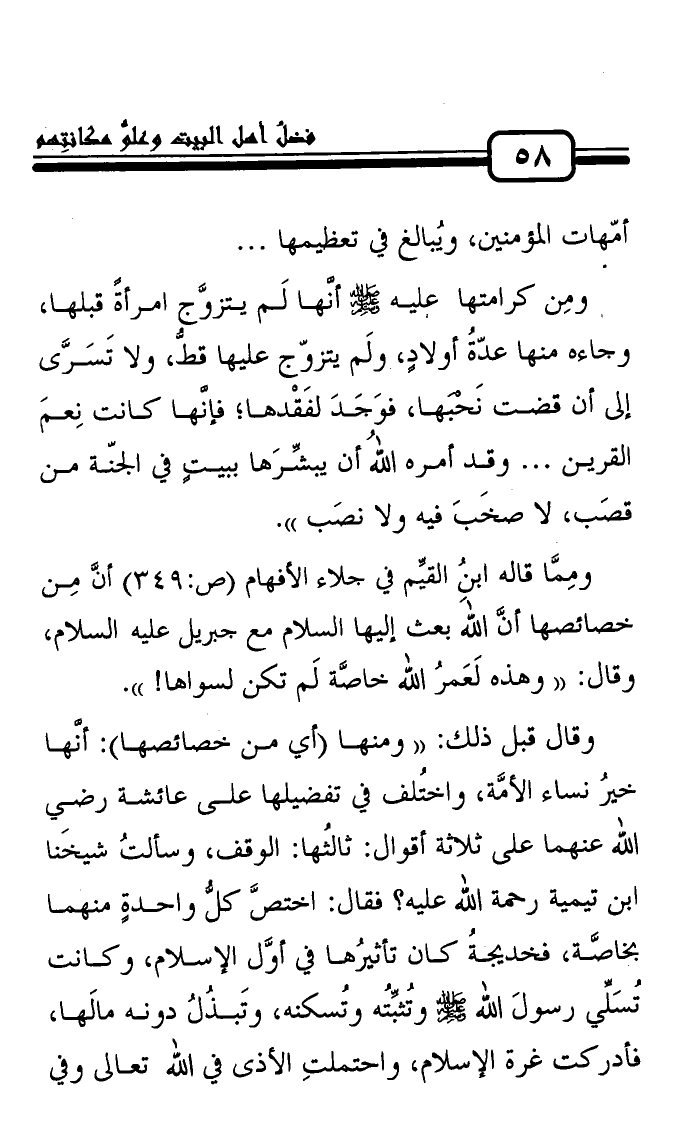 فضلُ أهل البيت وعلوُّ مكانتِهم
٥٨
أمّهات المؤمنين، ويُبالغ في تعظيمها ...
ومِن كرامتها عليه ﷺ أنَّها لَم يتزوَّج امرأةً قبلها،
وجاءه منها عدّةُ أولادٍ، ولَم يتزوّج عليها قطُّ، ولا تَسَرَّى
إلى أن قضت نَحْبَها، فوَجَدَ لفَقْدها؛ فإنَّها كانت نِعمَ
القرين ... وقد أمره اللهُ أن يبشِّرَها ببيتٍ في الجنّة من
قصَب، لا صخَبَ فيه ولا نصَب )).
ومِمَّا قاله ابنُ القيِّم في جلاء الأفهام (ص:٣٤٩) أنَّ مِن
خصائصها أنَّ اللهَ بعث إليها السلام مع جبريل عليه السلام،
وقال: (( وهذه لَعَمرُ الله خاصَّة لَم تكن لسواها! )).
وقال قبل ذلك: (( ومنها (أي من خصائصها): أنَّها
خيرُ نساء الأمَّة، واختُلف في تفضيلها على عائشة رضي
الله عنهما على ثلاثة أقوال: ثالثُها: الوقف، وسألتُ شيخَنا
ابن تيمية رحمة الله عليه؟ فقال: اختصَّ كلُّ واحدةٍ منهما
بخاصَّة، فخديجةُ كان تأثيرُها في أوَّل الإسلام، وكانت
تُسَلِّي رسولَ الله ﷺ وتُثبِّتُه وتُسكنه، وتَبذُلُ دونه مالَها،
فأدركت غرة الإسلام، واحتملتِ الأذى في الله تعالى وفي